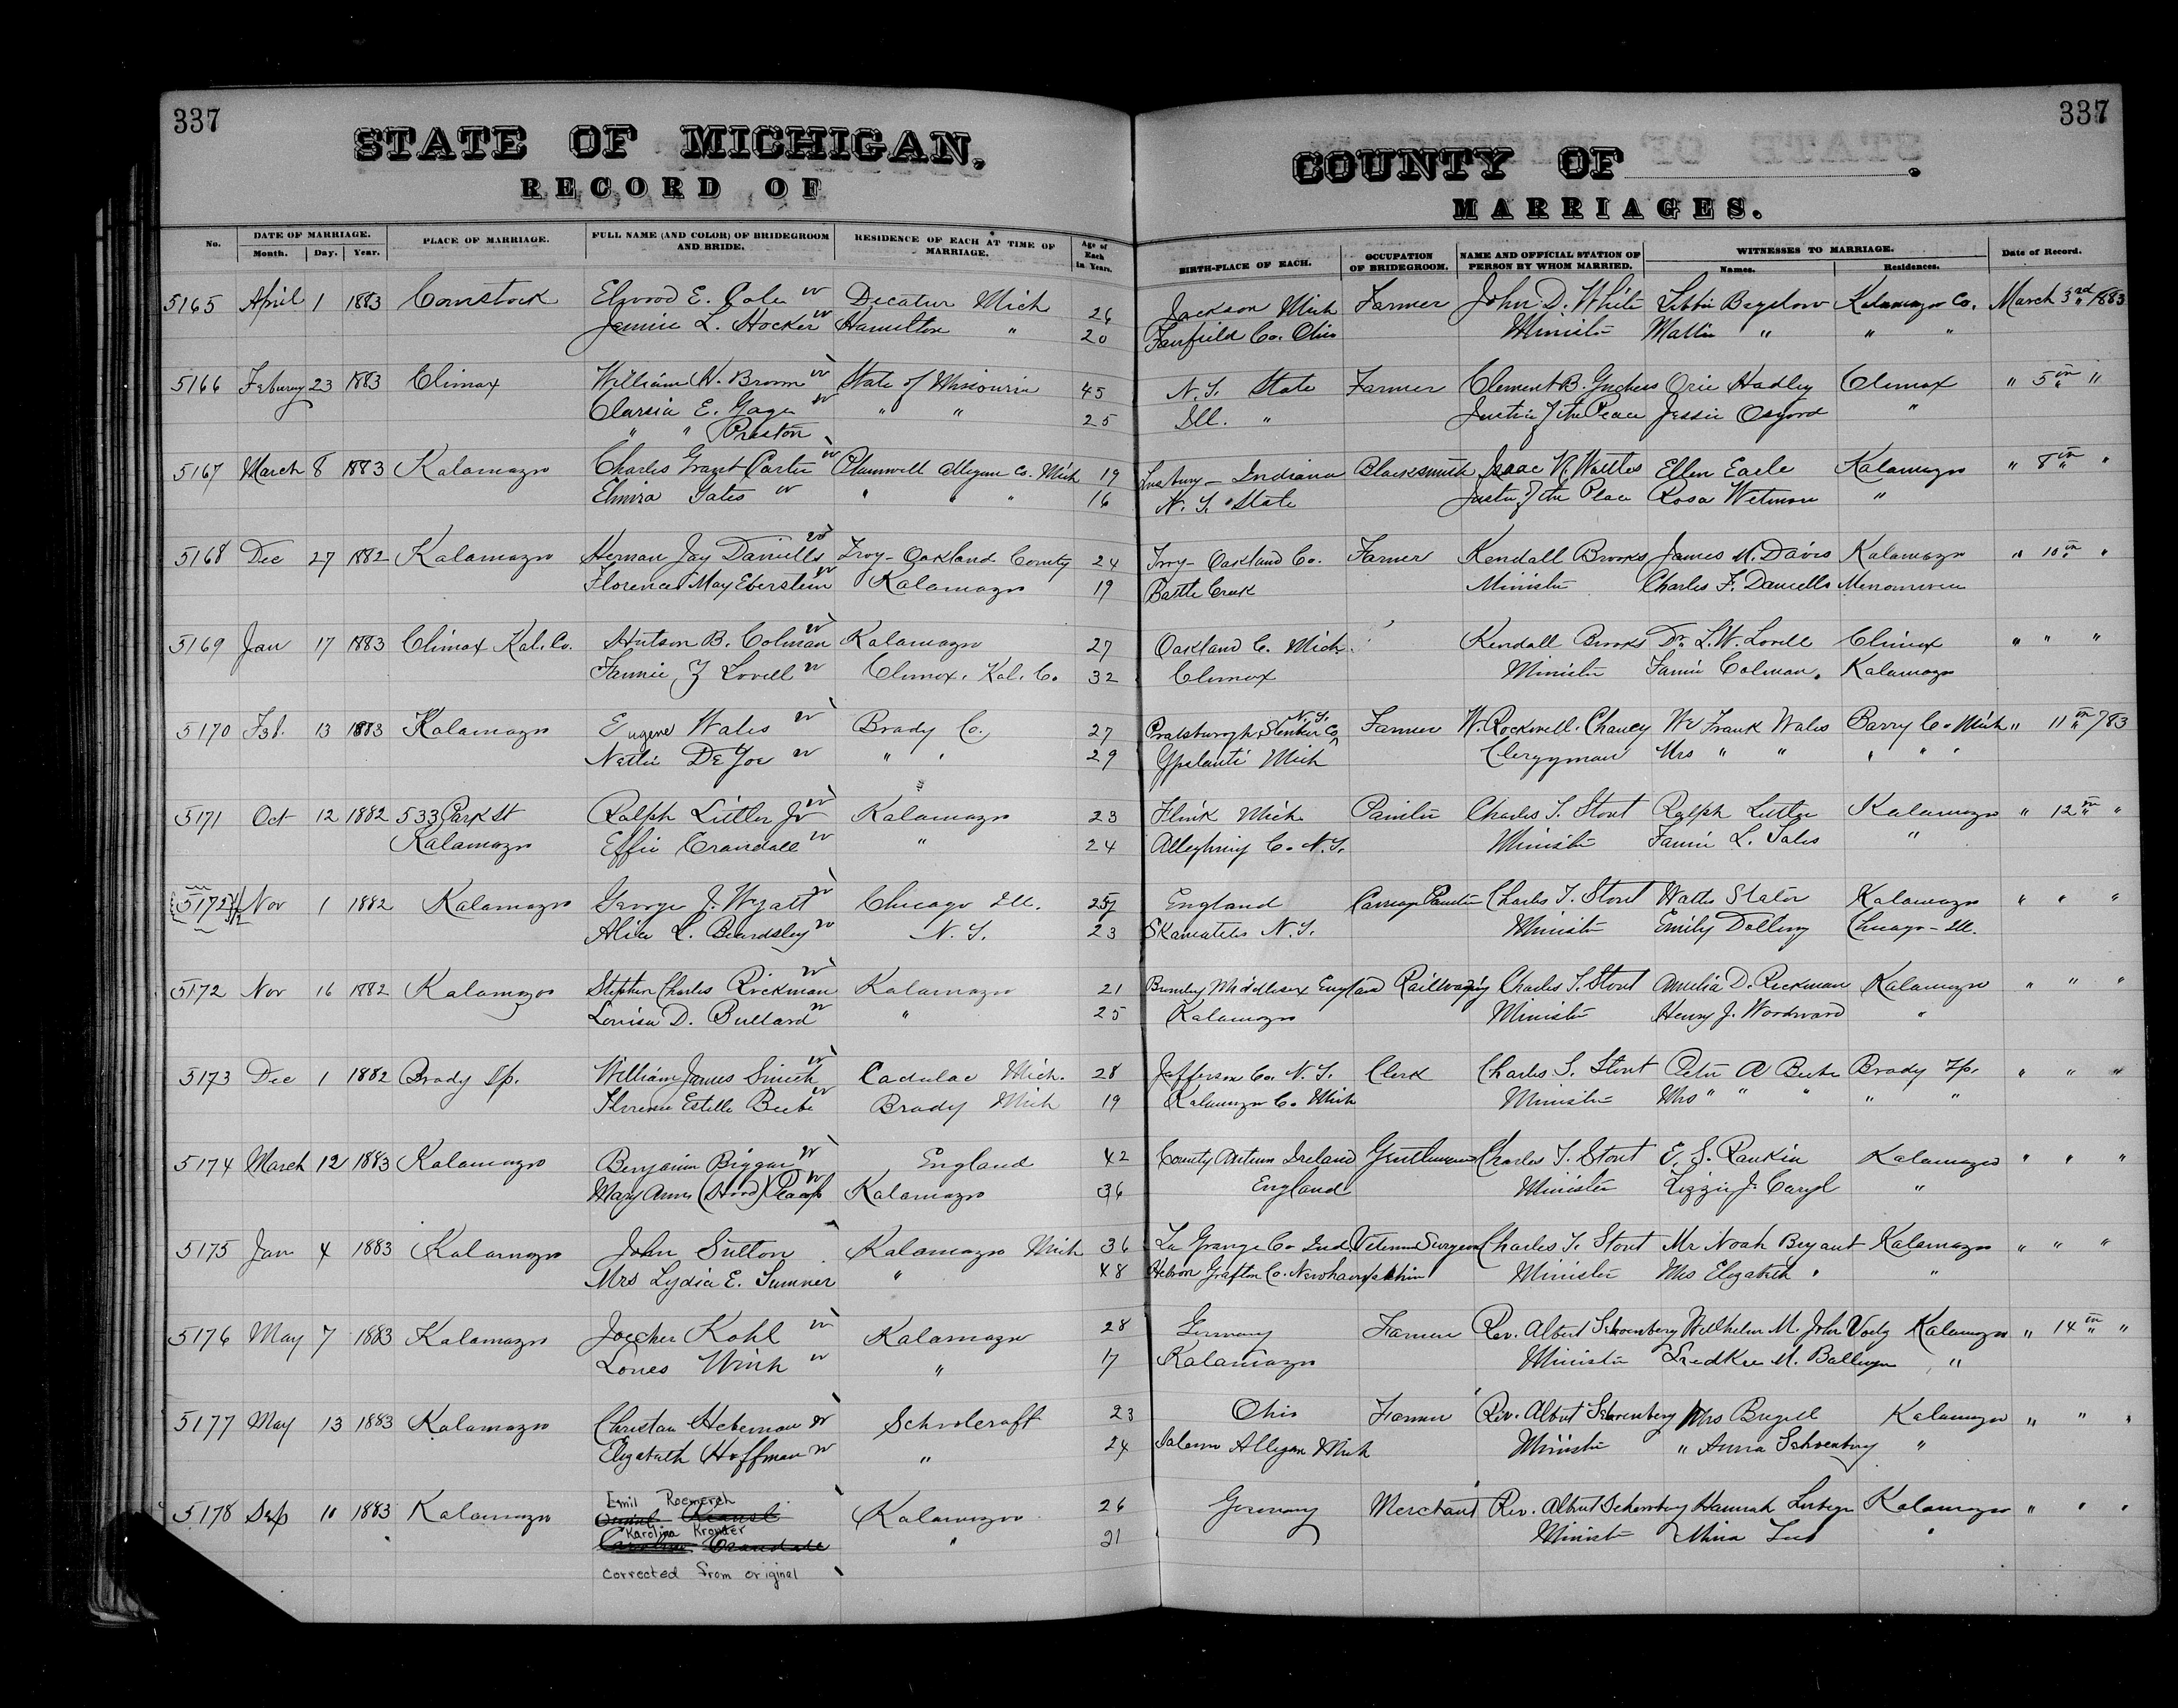 337
337
STATE OF MICHIGAN.
COUNTY OF .
RECORD OF
MARRIAGES.
No. DATE OF MARRIAGE. Month. Day. Year. PLACE OF MARRIAGE. FULL NAME (AND COLOR) OF BRIDEGROOM AND BRIDE. RESIDENCE OF EACH AT TIME OF MARRIAGE. Age of Each in Years. BIRTH-PLACE OF EACH. OCCUPATION OF BRIDEGROOM. NAME AND OFFICIAL STATION OF PERSON BY WHOM MARRIED. WITNESSES TO MARRIAGE. Names. Residences. Date of Record.
5165 April 1 1883 Comstock Elwood E. Cole w Decatur Mich 26 Jackson Mich Farmer John D. White Libbie Bigelow Kalamazoo Co. March 3rd 1883
Jennie L. Hocker w Hamilton " 20 Fairfield Co. Ohio Minister Mattie " " "
5166 Feburary 23 1883 Climax William N. Brown w State of Missourie 45 N.Y. State Farmer Clement B. Orie Hadley Climax " 5th "
E. Gage w " " 25 Ill. " Justice of the Peace Jessie Osgood "
" " Preston
5167 March 8 1883 Kalamazoo Charles Carter w Plainwell Allegan Co. Mich 19 Indiana Blacksmith Isaac N. Wattles Ellen Earle Kalamazoo " 8th "
Elmira Yates w " " " 16 N.Y. State Justice of the Peace Rosa Wetmore "
5168 Dec 27 1882 Kalamazoo Herman Jay Daniells w Troy - Oakland County 24 Troy - Oakland Co. Farmer Kendall Brooks James M. Davis Kalamazoo " 10th "
Florence May Eberstein w Kalamazoo 19 Battle Creek Minister Charles F. Daniells
5169 Jan 17 1883 Climax Kal. Co. Hutson B. Colman w Kalamazoo 27 Oakland Co. Mich. Kendall Brooks Dr. L.W. Lovell Climax " " "
Fannie Z Lovell w Climax, Kal. Co. 32 Climax Minister Fannie Colman. Kalamazoo
5170 Feb. 13 1883 Kalamazoo Eugene Wales w Brady Co. 27 N.Y. Farmer W. Rockwell Chancy W Frank Wales Barry Co. Mich " 11th /83
Nettie DeYoe w " " 29 Ypsilanti Mich Clergyman Mrs " " " " "
5171 Oct 12 1882 533 Park St Ralph Littler Jr w Kalamazoo 23 Flink Mich Painter Charles T. Stout Ralph Kalamazoo " 12th "
Kalamazoo Effie Crandall w " 24 Alleghiny Co. N.Y. Minister Fannie L. "
5172 1/2 Nov 1 1882 Kalamazoo George J. Wyatt w Chicago Ill. 25 England Carriage Painter Charles T. Stout Kalamazoo " " "
Alice L. Beardsley w N.Y. 23 Skaneateles N.Y. Minister Emily Chicago - Ill.
5172 Nov 16 1882 Kalamazoo Stephen Charles Rickman w Kalamazoo 21 Bromley Middlesex England Railwaying Charles T. Stout Amelia D. Rickman Kalamazoo " " "
Louisa D. Bullard w " 25 Kalamazoo Minister Henry J. Woodward "
5173 Dec 1 1882 Brady Tp. William James Smith w Cadulac Mich. 28 Jefferson Co. N.Y. Clerk Charles S. Stout Peter A Beebe Brady Tp. " " "
Florence Estella Beebe w Brady Mich 19 Kalamazoo Co. Mich Minister Mrs " " " " "
5174 March 12 1883 Kalamazoo Benjamin Biggar w England 42 County Antrim Ireland Gentleman Charles T. Stout E. S. Rankin Kalamazoo " " "
Mary Anne (Hood) w Kalamazoo 36 England Minister Lizzie J. Caryl "
5175 Jan 4 1883 Kalamazoo John Sutton Kalamazoo Mich 36 La Grange Co Ind Surgeon Charles T. Stout Mr Noah Bryant Kalamazoo " " "
Mrs Lydia E. Sumner " 48 Hebron Grafton Co. Minister Mrs Elizabeth " "
5176 May 7 1883 Kalamazoo Kohl w Kalamazoo 28 Germany Farmer Rev. Albert Schoenberg Wilhelm M. John Kalamazoo " 14th "
w " 17 Kalamazoo Minister M. "
5177 May 13 1883 Kalamazoo Christan w Schoolcraft 23 Ohio Farmer Rev. Albert Schoenberg Mrs Kalamazoo " " "
Elizabeth Hoffman w " 24 Salem Allegan Mich Minister " Anna Schoenberg "
5178 Sep 10 1883 Kalamazoo Emil Roemerch Kalamazoo 26 Germany Merchant Rev. Albert Schoenberg Hannah Kalamazoo " " "
Karolina Krowter " 21 Minister Mina "
corrected from original